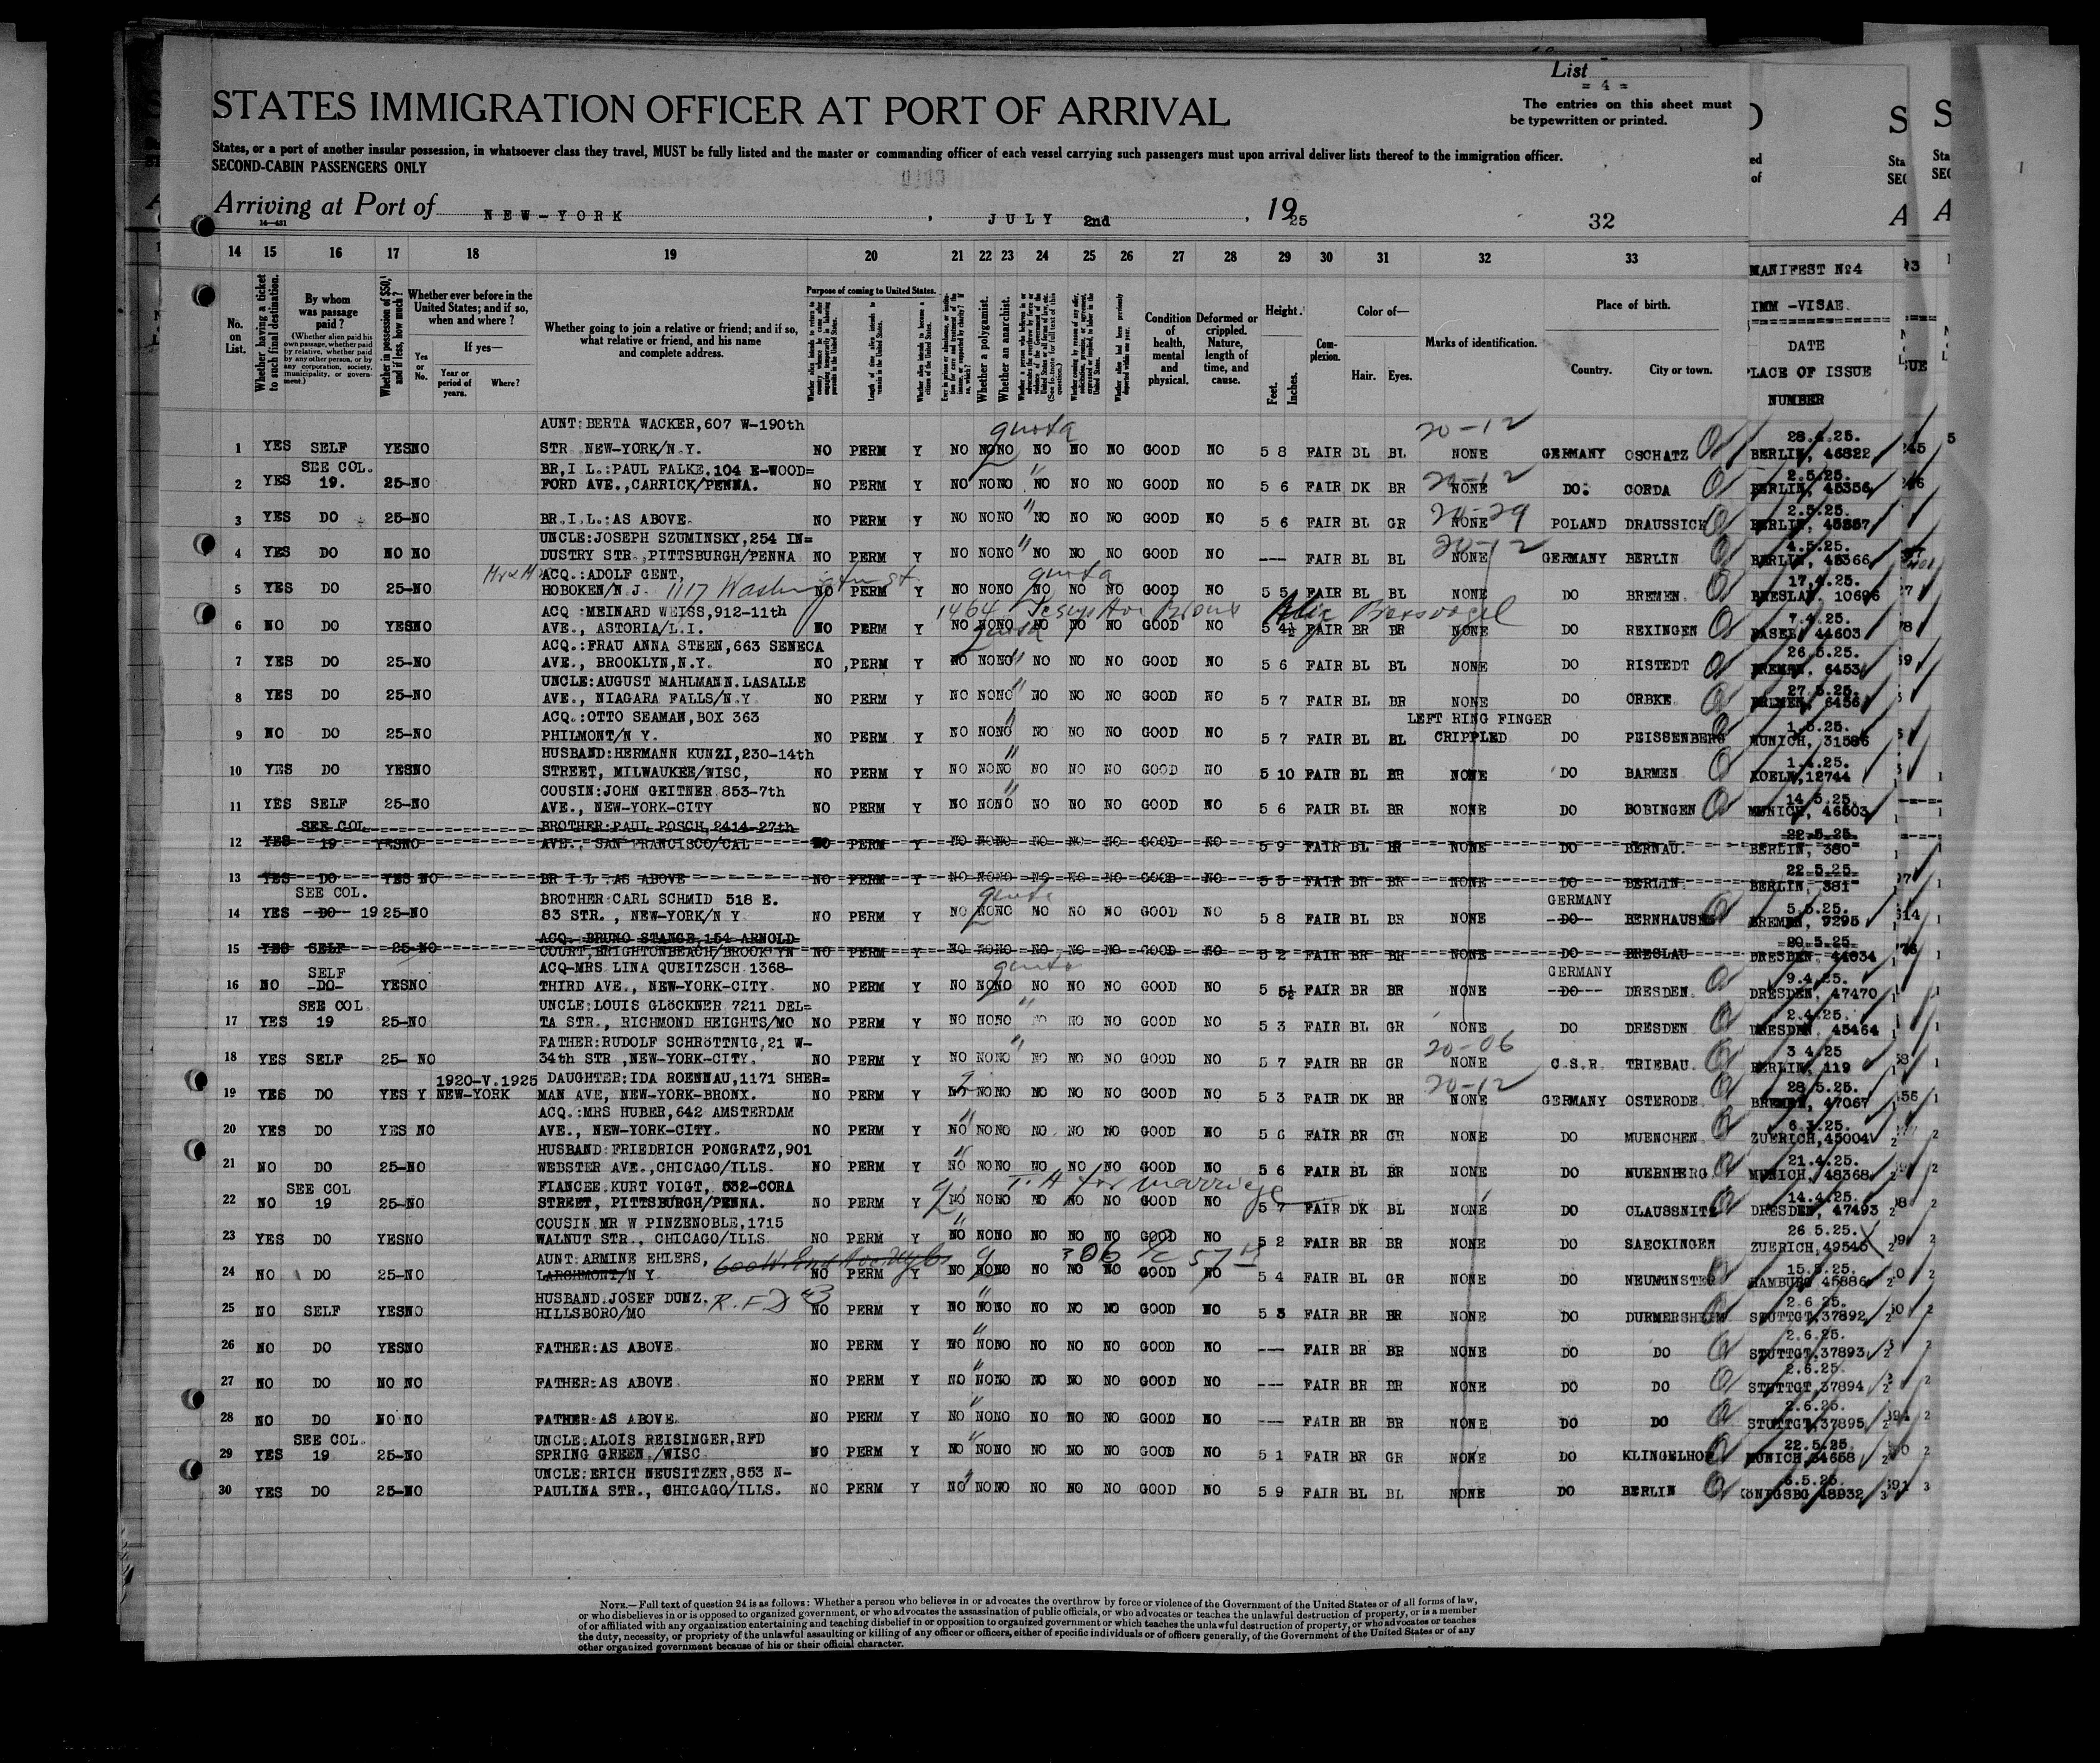 List
= 4 =
STATES IMMIGRATION OFFICER AT PORT OF ARRIVAL
The entries on this sheet must
be typewritten or printed.
States, or a port of another insular possession, in whatsoever class they travel, MUST be fully listed and the master or commanding officer of each vessel carrying such passengers must upon arrival deliver lists thereof to the immigration officer.
SECOND-CABIN PASSENGERS ONLY
Arriving at Port of NEW-YORK , JULY 2nd , 1925 32
14 15 16 17 18 19 20 21 22 23 24 25 26 27 28 29 30 31 32 33
MANIFEST Nº4
IMM -VISAE.
DATE
PLACE OF ISSUE
NUMBER
No. on List.
Whether having a ticket to such final destination.
By whom was passage paid?
(Whether alien paid his own passage, whether paid by relative, whether paid by any other person, or by any corporation, society, municipality, or government.)
Whether in possession of $50, and if less, how much?
Whether ever before in the United States; and if so, when and where?
Yes or No.
If yes—
Year or period of years.
Where?
Whether going to join a relative or friend; and if so, what relative or friend, and his name and complete address.
Purpose of coming to United States.
Length of time alien intends to remain in the United States.
Whether alien intends to become a citizen of the United States.
Whether a polygamist.
Whether an anarchist.
Condition of health, mental and physical.
Deformed or crippled. Nature, length of time, and cause.
Height.
Feet. Inches.
Complexion.
Color of—
Hair. Eyes.
Marks of identification.
Place of birth.
Country. City or town.
AUNT:BERTA WACKER,607 W-190th quota 20-12
1 YES SELF YES NO STR. NEW-YORK/N.Y. NO PERM Y NO NO NO NO NO NO GOOD NO 5 8 FAIR BL BL NONE GERMANY OSCHATZ 28.4.25. BERLIN, 46322
SEE COL. BR,I L.:PAUL FALKE.104 E-WOOD= 20-12
2 YES 19. 25- NO FORD AVE.,CARRICK/PENNA. NO PERM Y NO NO NO NO NO NO GOOD NO 5 6 FAIR DK BR NONE DO. CORDA 2.5.25. BERLIN, 45356
3 YES DO 25- NO BR.I.L.:AS ABOVE. NO PERM Y NO NO NO NO NO NO GOOD NO 5 6 FAIR BL GR NONE 20-29 POLAND DRAUSSICH 2.5.25. BERLIN, 45357
UNCLE:JOSEPH SZUMINSKY,254 IN=
4 YES DO NO NO DUSTRY STR.,PITTSBURGH/PENNA NO PERM Y NO NO NO NO NO NO GOOD NO --- FAIR BL BL NONE 20-12 GERMANY BERLIN 4.5.25. BERLIN, 45366
ACQ.:ADOLF GENT, quota
5 YES DO 25-NO HOBOKEN/N J. 1117 Washington st. NO PERM Y NO NO NO NO NO NO GOOD NO 5 5 FAIR BL BL NONE DO BREMEN. 17.4.25. BRESLAU. 10696
ACQ :MEINARD WEISS,912-11th 1464 Jesup Ave Bronx
6 NO DO YES NO AVE., ASTORIA/L.I. NO PERM Y NO NO NO NO NO NO GOOD NO 5 4½ FAIR BR BR NONE DO REXINGEN 7.4.25. BASEL, 44603
ACQ.:FRAU ANNA STEEN,663 SENECA quota
7 YES DO 25-NO AVE., BROOKLYN,N.Y. NO PERM Y NO NO NO NO NO NO GOOD NO 5 6 FAIR BL BL NONE DO RISTEDT 26.5.25. BREMEN, 6453
UNCLE:AUGUST MAHLMANN.LASALLE
8 YES DO 25-NO AVE., NIAGARA FALLS/N.Y. NO PERM Y NO NO NO NO NO NO GOOD NO 5 7 FAIR BL BR NONE DO ORBKE 27.5.25. BREMEN, 6456
ACQ.:OTTO SEAMAN,BOX 363 LEFT RING FINGER
9 NO DO 25-NO PHILMONT/N Y. NO PERM Y NO NO NO NO NO NO GOOD NO 5 7 FAIR BL BL CRIPPLED DO PEISSENBERG 1.5.25. MUNICH, 31586
HUSBAND:HERMANN KUNZI,230-14th
10 YES DO YES NO STREET, MILWAUKEE/WISC, NO PERM Y NO NO NO NO NO NO GOOD NO 5 10 FAIR BL BR NONE DO BARMEN 1.4.25. KOELN,12744
COUSIN:JOHN GEITNER 853-7th
11 YES SELF 25-NO AVE., NEW-YORK-CITY NO PERM Y NO NO NO NO NO NO GOOD NO 5 6 FAIR BL BR NONE DO BOBINGEN 14.5.25. MUNICH, 46603
SEE COL BROTHER:PAUL POSCH,2414-27th
12 YES 19 YES NO AVE., SAN FRANCISCO/CAL NO PERM Y NO NO NO NO NO NO GOOD NO 5 9 FAIR BL BR NONE DO BERNAU. 22.5.25. BERLIN, 380
13 YES DO YES NO BR I L .AS ABOVE NO PERM Y NO NO NO NO NO NO GOOD NO 5 5 FAIR BR BR NONE DO BERLIN. 22.5.25. BERLIN, 381
SEE COL. BROTHER CARL SCHMID 518 E. quota GERMANY
14 YES -DO- 19 25-NO 83 STR., NEW-YORK/N Y NO PERM Y NO NO NO NO NO NO GOOD NO 5 8 FAIR BL BR NONE -DO- BERNHAUSEN 5.5.25. BREMEN, 9295
ACQ. BRUNO STANGE,154 ARNOLD
15 YES SELF 25-NO COURT,BRIGHTONBEACH/BROOKLYN NO PERM Y NO NO NO NO NO NO GOOD NO 5 2 FAIR BR BR NONE DO BRESLAU 20.5.25. DRESDEN 44634
SELF ACQ-MRS LINA QUEITZSCH 1368- quota GERMANY
16 NO -DO- YES NO THIRD AVE., NEW-YORK-CITY. NO PERM Y NO NO NO NO NO NO GOOD NO 5 5½ FAIR BR BR NONE -DO- DRESDEN. 9.4.25. DRESDEN, 47470
SEE COL. UNCLE:LOUIS GLÖCKNER 7211 DEL=
17 YES 19 25-NO TA STR., RICHMOND HEIGHTS/MO NO PERM Y NO NO NO NO NO NO GOOD NO 5 3 FAIR BL GR NONE DO DRESDEN 2.4.25. DRESDEN, 45464
FATHER:RUDOLF SCHRÖTTNIG,21 W- 20-06
18 YES SELF 25- NO 34th STR.,NEW-YORK-CITY. NO PERM Y NO NO NO NO NO NO GOOD NO 5 7 FAIR BR GR NONE C.S.R. TRIEBAU. 3 4.25 BERLIN, 119
1920-V.1925 DAUGHTER:IDA ROENNAU,1171 SHER= 20-12
19 YES DO YES Y NEW-YORK MAN AVE, NEW-YORK-BRONX. NO PERM Y NO NO NO NO NO NO GOOD NO 5 3 FAIR DK BR NONE GERMANY OSTERODE. 28.5.25. BREMEN, 47067
ACQ.:MRS HUBER,642 AMSTERDAM
20 YES DO YES NO AVE., NEW-YORK-CITY. NO PERM Y NO NO NO NO NO NO GOOD NO 5 6 FAIR BR GR NONE DO MUENCHEN 6.3.25. ZUERICH,45004
HUSBAND:FRIEDRICH PONGRATZ,901
21 NO DO 25-NO WEBSTER AVE.,CHICAGO/ILLS. NO PERM Y NO NO NO NO NO NO GOOD NO 5 6 FAIR BL BR NONE DO NUERNBERG 21.4.25. MUNICH, 48368
SEE COL FIANCEE:KURT VOIGT, 532-CORA T.H for marriage
22 NO 19 25-NO STREET, PITTSBURGH/PENNA. NO PERM Y NO NO NO NO NO NO GOOD NO 5 7 FAIR DK BL NONE DO CLAUSSNITZ 14.4.25. DRESDEN, 47493
COUSIN MR W PINZENOBLE,1715
23 YES DO YES NO WALNUT STR., CHICAGO/ILLS. NO PERM Y NO NO NO NO NO NO GOOD NO 5 2 FAIR BR BR NONE DO SAECKINGEN 26.5.25. ZUERICH,49545
AUNT:ARMINE EHLERS, 306 E 57
24 NO DO 25-NO LARCHMONT/N Y. NO PERM Y NO NO NO NO NO NO GOOD NO 5 4 FAIR BL GR NONE DO NEUMÜNSTER 15.5.25. HAMBURG 45886
HUSBAND JOSEF DUNZ. R.F.D #3
25 NO SELF YES NO HILLSBORO/MO NO PERM Y NO NO NO NO NO NO GOOD NO 5 3 FAIR BR BR NONE DO DURMERSHEIM 2.6.25. STUTTGT,37892
26 NO DO YES NO FATHER:AS ABOVE. NO PERM Y NO NO NO NO NO NO GOOD NO --- FAIR BR BR NONE DO DO 2.6.25. STUTTGT,37893
27 NO DO NO NO FATHER:AS ABOVE. NO PERM Y NO NO NO NO NO NO GOOD NO --- FAIR BR BR NONE DO DO 2.6.25. STUTTGT,37894
28 NO DO NO NO FATHER:AS ABOVE. NO PERM Y NO NO NO NO NO NO GOOD NO --- FAIR BR BR NONE DO DO 2.6.25. STUTTGT,37895
SEE COL. UNCLE:ALOIS REISINGER,RFD
29 YES 19 25-NO SPRING GREEN./WISC NO PERM Y NO NO NO NO NO NO GOOD NO 5 1 FAIR BR GR NONE DO KLINGELHOF 22.5.25. MUNICH,34658
UNCLE:ERICH NEUSITZER,853 N-
30 YES DO 25-NO PAULINA STR., CHICAGO/ILLS. NO PERM Y NO NO NO NO NO NO GOOD NO 5 9 FAIR BL BL NONE DO BERLIN 6.5.25. KÖNIGSBG 48932
NOTE.—Full text of question 24 is as follows: Whether a person who believes in or advocates the overthrow by force or violence of the Government of the United States or of all forms of law,
or who disbelieves in or is opposed to organized government, or who advocates the assassination of public officials, or who advocates or teaches the unlawful destruction of property, or is a member
of or affiliated with any organization entertaining and teaching disbelief in or opposition to organized government or which teaches the unlawful destruction of property, or who advocates or teaches
the duty, necessity, or propriety of the unlawful assaulting or killing of any officer or officers, either of specific individuals or of officers generally, of the Government of the United States or of any
other organized government because of his or their official character.